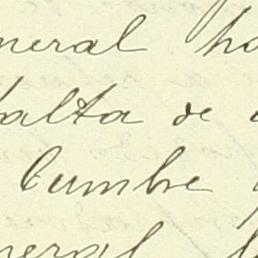 neral ha
falta de
Cumbre
neral